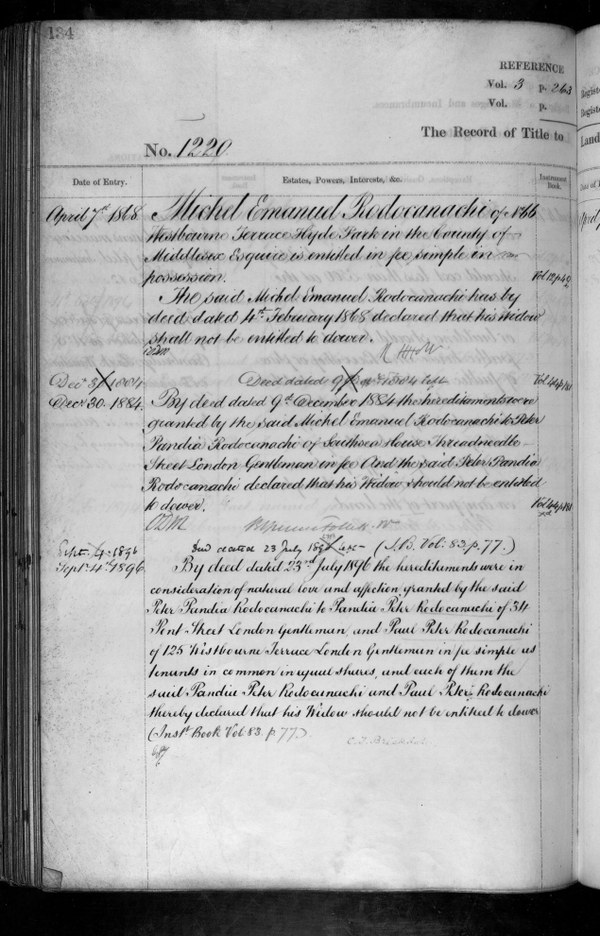 134
REFERENCE
Vol. 3 p. 263
Vol. p.
The Record of Title to
No. 1220.
Date of Entry.
Estates, Powers, Interests, &c.
Instrument Book.
April 7th 1868
Michel Emanuel Rodocanachi of
Westbourne Terrace Hyde Park in the County of
Middlesex Esquire is entitled in fee simple in
possession.
Vol 12 p 42
The said Michel Emanuel Rodocanachi has by
deed dated 4th February 1868 declared that his Widow
shall not be entitled to dower.
Decr 1884
Deed dated 9 Decr 1884 left
Decr 30. 1884.
By deed dated 9th December 1884 the hereditaments were
granted by the said Michel Emanuel Rodocanachi to Peter
Pandia Rodocanachi of Southsea House Threadneedle
Street London Gentleman in fee And the said Peter Pandia
Rodocanachi declared that his Widow should not be entitled
to dower.
Sept. 4. 1896
Deed dated 23 July 1896 left (I.B. Vol: 83. p. 77.)
Sept. 4th 1896
By deed dated 23rd July 1896 the hereditaments were in
consideration of natural love and affection granted by the said
Peter Pandia Rodocanachi to Pandia Peter Rodocanachi of 34
Pont Street London Gentleman, and Paul Peter Rodocanachi
of 125 Westbourne Terrace London Gentleman in fee simple as
tenants in common in equal shares, and each of them the
said Pandia Peter Rodocanachi and Paul Peter Rodocanachi
thereby declared that his Widow should not be entitled to dower
(Inst. Book Vol 83. p. 77.)